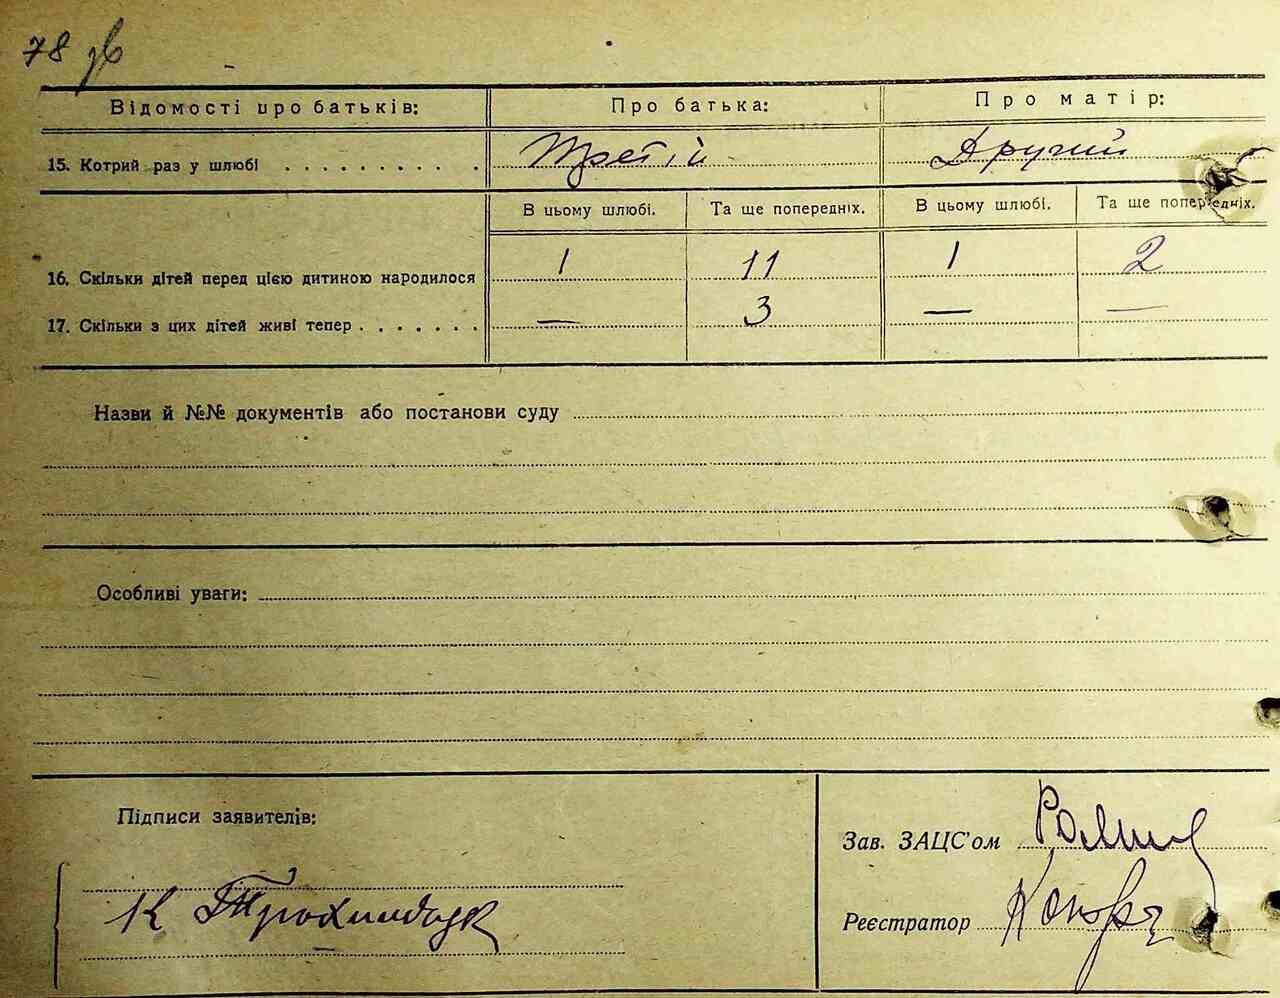 78 зв
Відомості про батьків: Про батька: Про матір:
15. Котрий раз у шлюбі . . . . . . . . . Третій Другий
В цьому шлюбі. Та ще попередніх. В цьому шлюбі. Та ще попередніх.
16. Скільки дітей перед цією дитиною народилося 1 11 1 2
17. Скільки з цих дітей живі тепер . . . . . . . — 3 — —
Назви й №№ документів або постанови суду
Особливі уваги:
Підписи заявителів:
Зав. ЗАЦС'ом
К
Реєстратор